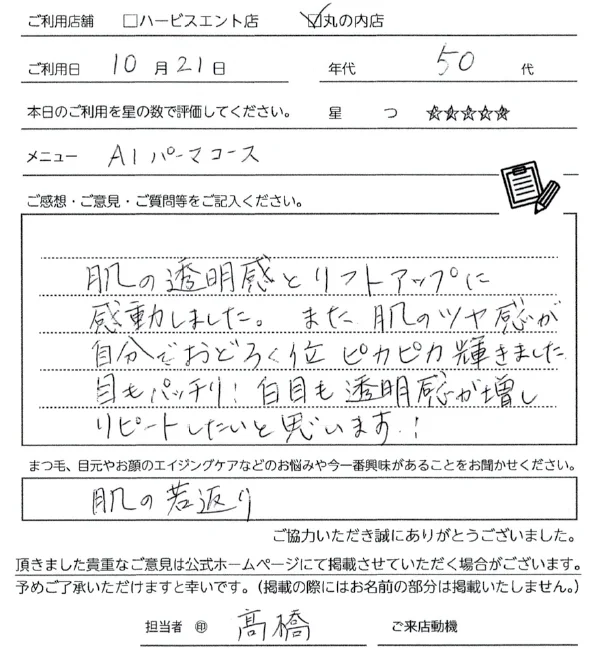 ご利用店舗 □ハービスエント店 ☑丸の内店
ご利用日 10月21日 年代 50代
本日のご利用を星の数で評価してください。 星 つ ☆☆☆☆☆
メニュー AIパーマコース
ご感想・ご意見・ご質問等をご記入ください。
肌の透明感とリフトアップに
感動しました。また肌のツヤ感が
自分でおどろく位ピカピカ輝きました
目もパッチリ!白目も透明感が増し
リピートしたいと思います!
まつ毛、目元やお顔のエイジングケアなどのお悩みや今一番興味があることをお聞かせください。
肌の若返り
ご協力いただき誠にありがとうございました。
頂きました貴重なご意見は公式ホームページにて掲載させていただく場合がございます。
予めご了承いただけますと幸いです。（掲載の際にはお名前の部分は掲載いたしません。）
担当者 ㊞ 高橋 ご来店動機